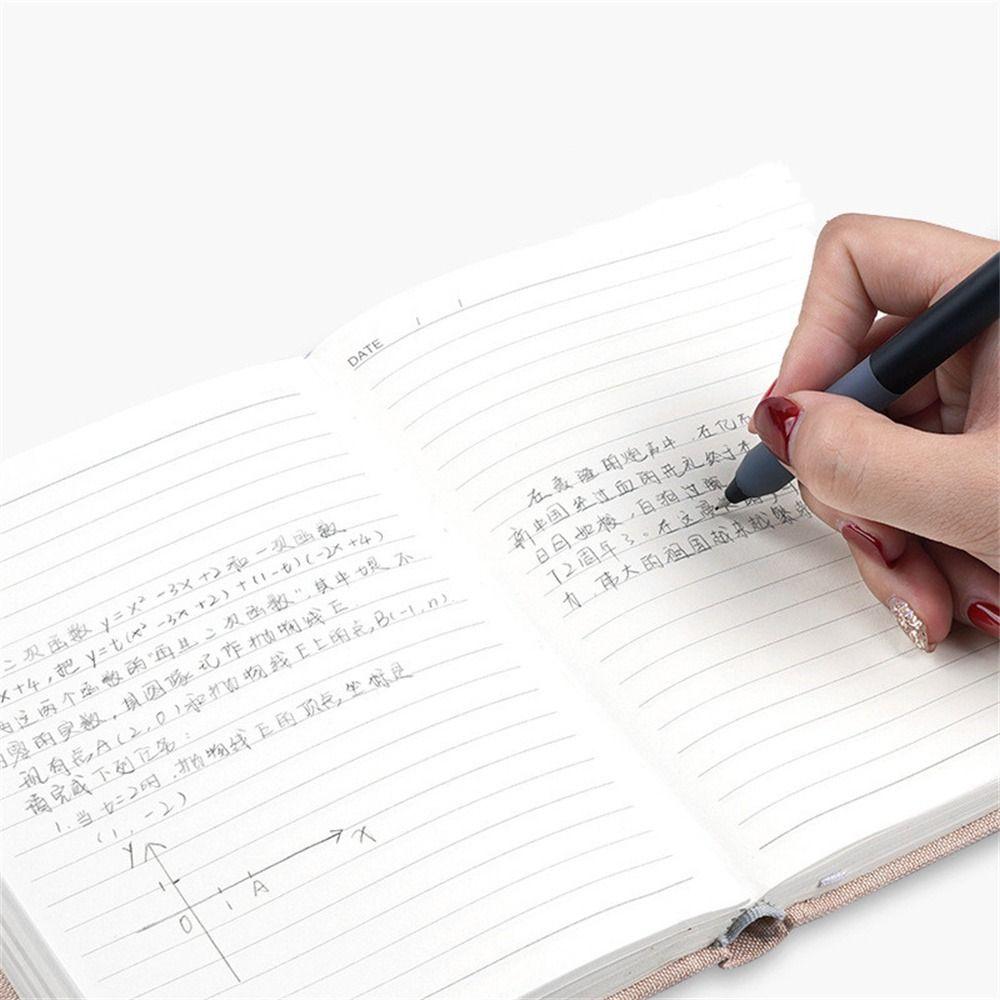 二次函数 y=x²-3x+2 和一次函数
x+4，把 y=t(x²-3x+2)+(1-t)(-2x+4)
这两个函数的"再生二次函数"其中t是不
的实数，其图象记作抛物线E
现有点A(2,0)和抛物线E上的点B(-1,n)
请完成下列任务：
1.当t=2时，抛物线E的顶点坐标是
(1,-2)
y
x
1
0
1
A
DATE
在 的炮声中，在亿
新中国
日日如梭，
72周年了。在这
力，伟大的祖国越来越繁